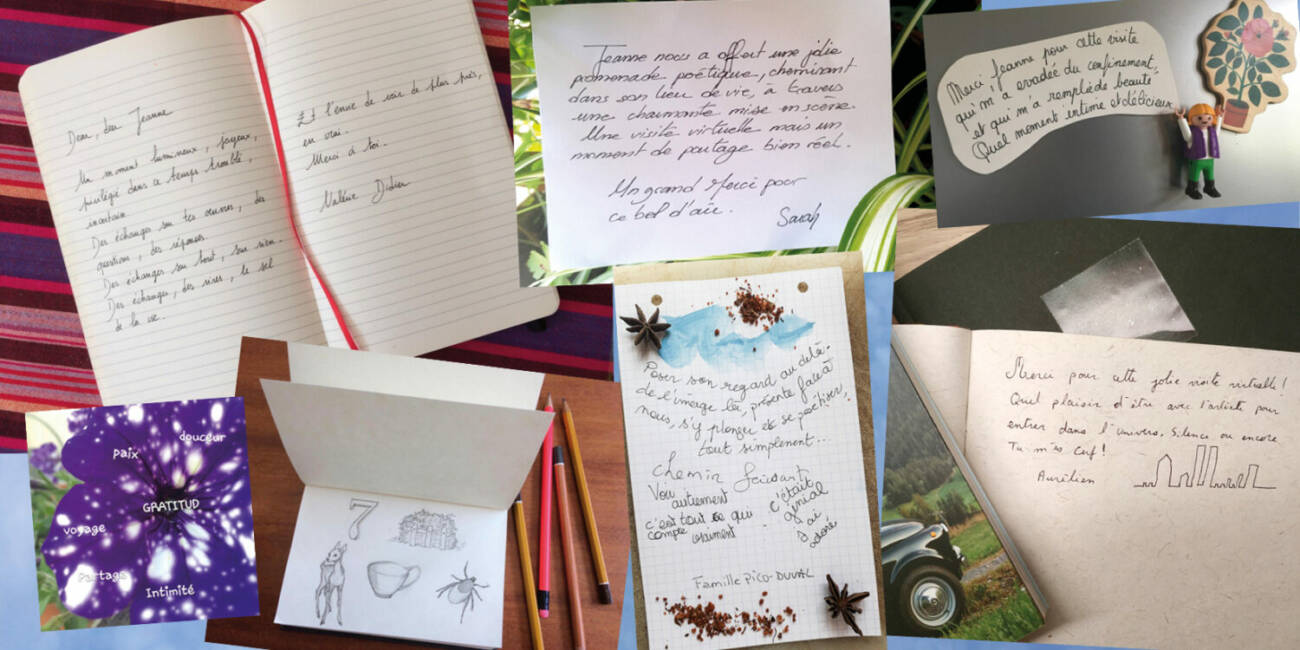 Dear, dear Jeanne
Un moment lumineux, joyeux,
privilégié dans ce temps troublé,
incertain.
Des échanges sur tes œuvres, des
questions, des réponses.
Des échanges sur tout, sur rien.
Des échanges, des rires, le sel
de la vie.
Et l'envie de voir de plus près,
en vrai.
Merci à toi.
Valérie Didier
Jeanne nous a offert une jolie
promenade poétique, cheminant
dans son lieu de vie, à travers
une charmante mise en scène.
Une visite virtuelle mais un
moment de partage bien réel.
Un grand Merci pour
ce bol d'air.
Sarah
Merci, Jeanne pour cette visite
qui m'a evadée du confinement,
et qui m'a remplie de beauté.
Quel moment intime et délicieux
douceur
Paix
GRATITUD
voyage
Partage
Intimité
7
Poser son regard au delà
de l'image là, présente face à
nous, s'y plonger et se poétiser,
tout simplement...
Chemin faisant
Voir
autrement
c'est tout ce qui
compte vraiment
c'était
génial
J'ai
adoré
Famille PICO-DUVAL
Merci pour cette jolie visite virtuelle !
Quel plaisir d'être avec l'artiste pour
entrer dans l'univers. Silence ou encore
Tu m'as cerf !
Aurélien